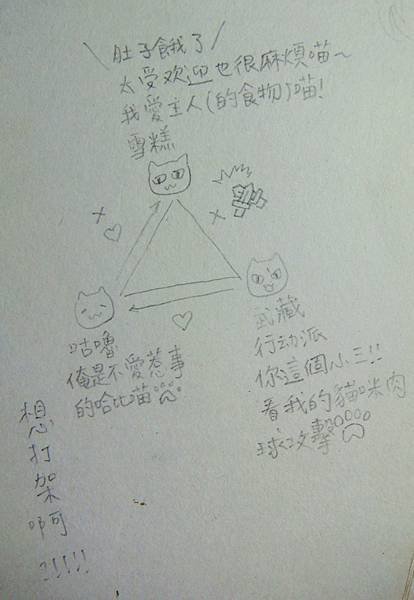 肚子餓了
太受欢迎也很麻煩喵～
我愛主人(的食物)喵!
雪糕
咕嚕
俺是不愛惹事
的哈比喵
武藏
行动派
你這個小三!!
看我的貓咪肉
球攻擊
想打架啊?!!!!